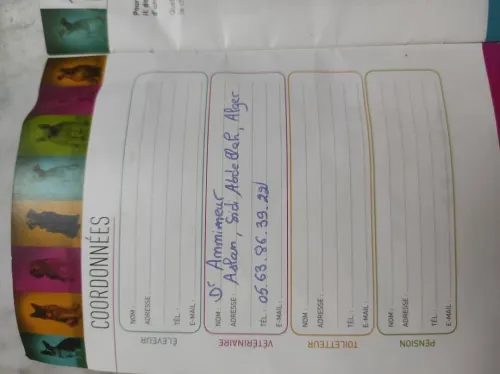 COORDONNÉES
ÉLEVEUR
NOM :
ADRESSE :
TÉL. :
E-MAIL :
VÉTÉRINAIRE
NOM : Dr Ammimeur
ADRESSE : Aslan, Sidi Abdellah, Alger
TÉL. : 05.63.86.39.22
E-MAIL :
TOILETTEUR
NOM :
ADRESSE :
TÉL. :
E-MAIL :
PENSION
NOM :
ADRESSE :
TÉL. :
E-MAIL :